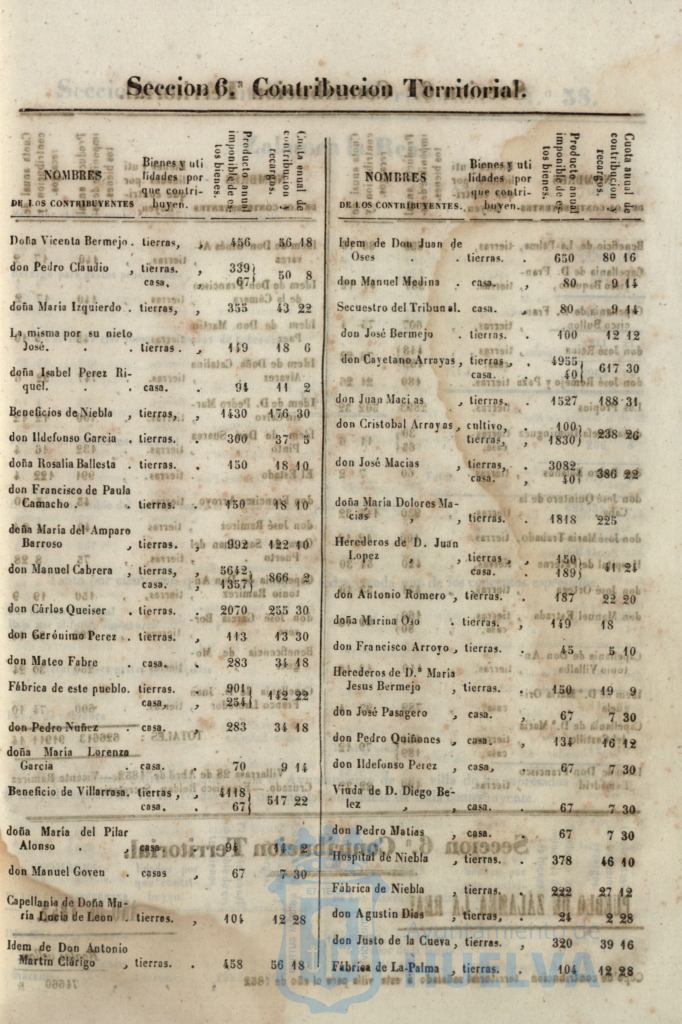 Seccion 6.ª Contribucion Territorial.
NOMBRES
DE LOS CONTRIBUYENTES
Bienes y uti
lidades por
que contri-
buyen.
Producto anual
imponible de es-
tos bienes.
Cuota anual de
contribucion y
recargos.
Doña Vicenta Bermejo. tierras, , 456 56 18
don Pedro Claudio , tierras. , 339
casa. , 67 50 8
doña María Izquierdo . tierras, , 355 43 22
La misma por su nieto
José. . . tierras . , 149 18 6
doña Isabel Perez Ri-
quel. . . casa. , 94 11 2
Beneficios de Niebla , tierras, , 1430 176 30
don Ildefonso Garcia . tierras. . 300 37 5
doña Rosalia Ballesta . tierras. . 150 18 10
don Francisco de Paula
Camacho . . tierras. . 150 18 10
doña María del Amparo
Barroso , tierras. . 992 122 10
don Manuel Cabrera , tierras, , 5642
casa. . 1357 866 2
don Cárlos Queiser . tierras. . 2070 255 30
don Gerónimo Perez . tierras. , 113 13 30
don Mateo Fabre . casa. . 283 34 18
Fábrica de este pueblo. tierras. . 901
casa, , 254 142 22
don Pedro Nuñez . casa. , 283 34 18
doña María Lorenza
Garcia . casa. . 70 9 14
Beneficio de Villarrasa. tierras , , 4118
casa. . 67 517 22
doña María del Pilar
Alonso . , casa. . 94 11 2
don Manuel Goveu . casas , 67 7 30
Capellania de Doña Ma-
ría Lucia de Leon . tierras. . 104 12 28
Idem de Don Antonio
Martin Clárigo , tierras. . 458 56 18
NOMBRES
DE LOS CONTRIBUYENTES.
Bienes y uti
lidades por
que contri-
buyen.
Producto anual
imponible de es-
tos bienes.
Cuota anual de
contribucion y
recargos.
Idem de Don Juan de
Oses . . tierras. . 650 80 16
don Manuel Medina . casa. , 80 9 14
Secuestro del Tribunal. casa. , 80 9 14
don José Bermejo . tierras. . 100 12 12
don Cayetano Arrayas, tierras , . 4955
casa. . 40 617 30
don Juan Macias , tierras. . 1527 188 31
don Cristobal Arrayas, cultivo, . 100
tierras, , 1830 238 26
don José Macias , tierras, . 3082
casa. , 40 386 22
doña María Dolores Ma-
cias , , tierras. . 1818 225
Herederos de D. Juan
Lopez , tierras , , 150
casa. . 189 41 24
don Antonio Romero , tierras. . 187 22 20
doña Marina Ojo . tierras. , 149 18
don Francisco Arroyo , tierras. . 45 5 10
Herederos de D.ª María
Jesus Bermejo , tierras. . 150 19 9
don José Pasagero , casa. , 67 7 30
don Pedro Quiñones , casa. . 134 16 12
don Ildefonso Perez , casa, , 67 7 30
Viuda de D. Diego Be-
lez , , casa. . 67 7 30
don Pedro Matias , casa. . 67 7 30
Hospital de Niebla , tierras. . 378 46 10
Fábrica de Niebla , tierras. . 222 27 12
don Agustin Dias , tierras, , 24 2 28
don Justo de la Cueva , tierras. , 320 39 16
Fábrica de La-Palma , tierras. . 104 12 28
Ayuntamiento de
HUELVA